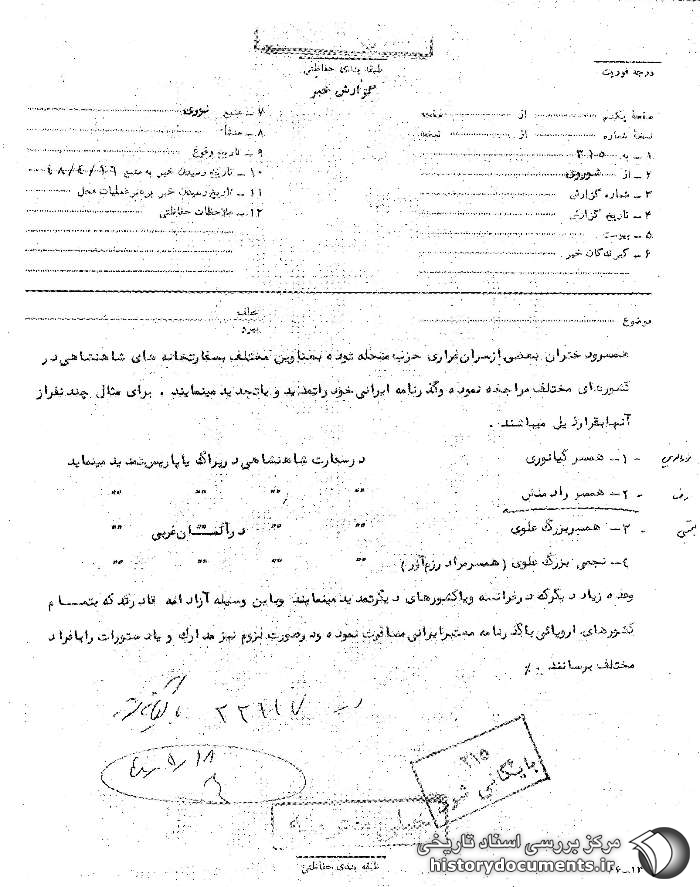 طبقه بندی حفاظتی
درجه فوریت
گزارش خبر
صفحهٔ یکم از صفحه
نسخهٔ شماره از نسخه
۱ـ به ۳۱۵
۲ـ از شوروی
۳ـ شماره گزارش
۴ـ تاریخ گزارش
۵ـ پیوست
۶ـ گیرندگان خبر
۷ـ منبع
۸ـ منشأ
۹ـ تاریخ وقوع
۱۰ـ تاریخ رسیدن خبر به منبع ۴۸/۴/۱۶
۱۱ـ تاریخ رسیدن خبر به رهبر عملیات محل
۱۲ـ ملاحظات حفاظتی
موضوع
همسر و دختران بعضی از سران فراری حزب منحله توده بعناوین مختلف بسفارتخانه های شاهنشاهی در
کشورهای مختلف مراجعه نموده و گذرنامه ایرانی خود را تمدید و یا تجدید مینمایند . برای مثال چند نفر از
آنها بقرار ذیل میباشند .
۱- همسر کیانوری در سفارت شاهنشاهی در پراگ یا پاریس تمدید مینماید
۲- همسر رادمنش " " " "
۳- همسر بزرگ علوی " " در آلمان غربی "
۴- نجمی بزرگ علوی ( همسر مراد رزم آور ) " " " "
وعده زیاد دیگر که در فرانسه ویا کشورهای دیگر تمدید مینمایند وباین وسیله آزادانه قادرند که بتمام
کشورهای اروپائی با گذرنامه معتبر ایرانی مسافرت نموده و در صورت لزوم نیز مدارک و یا دستورات را با فراد
مختلف برسانند ٪
۳۱۵
بایگانی شود
طبقه بندی حفاظتی
مرکز بررسی اسناد تاریخی
historydocuments.ir